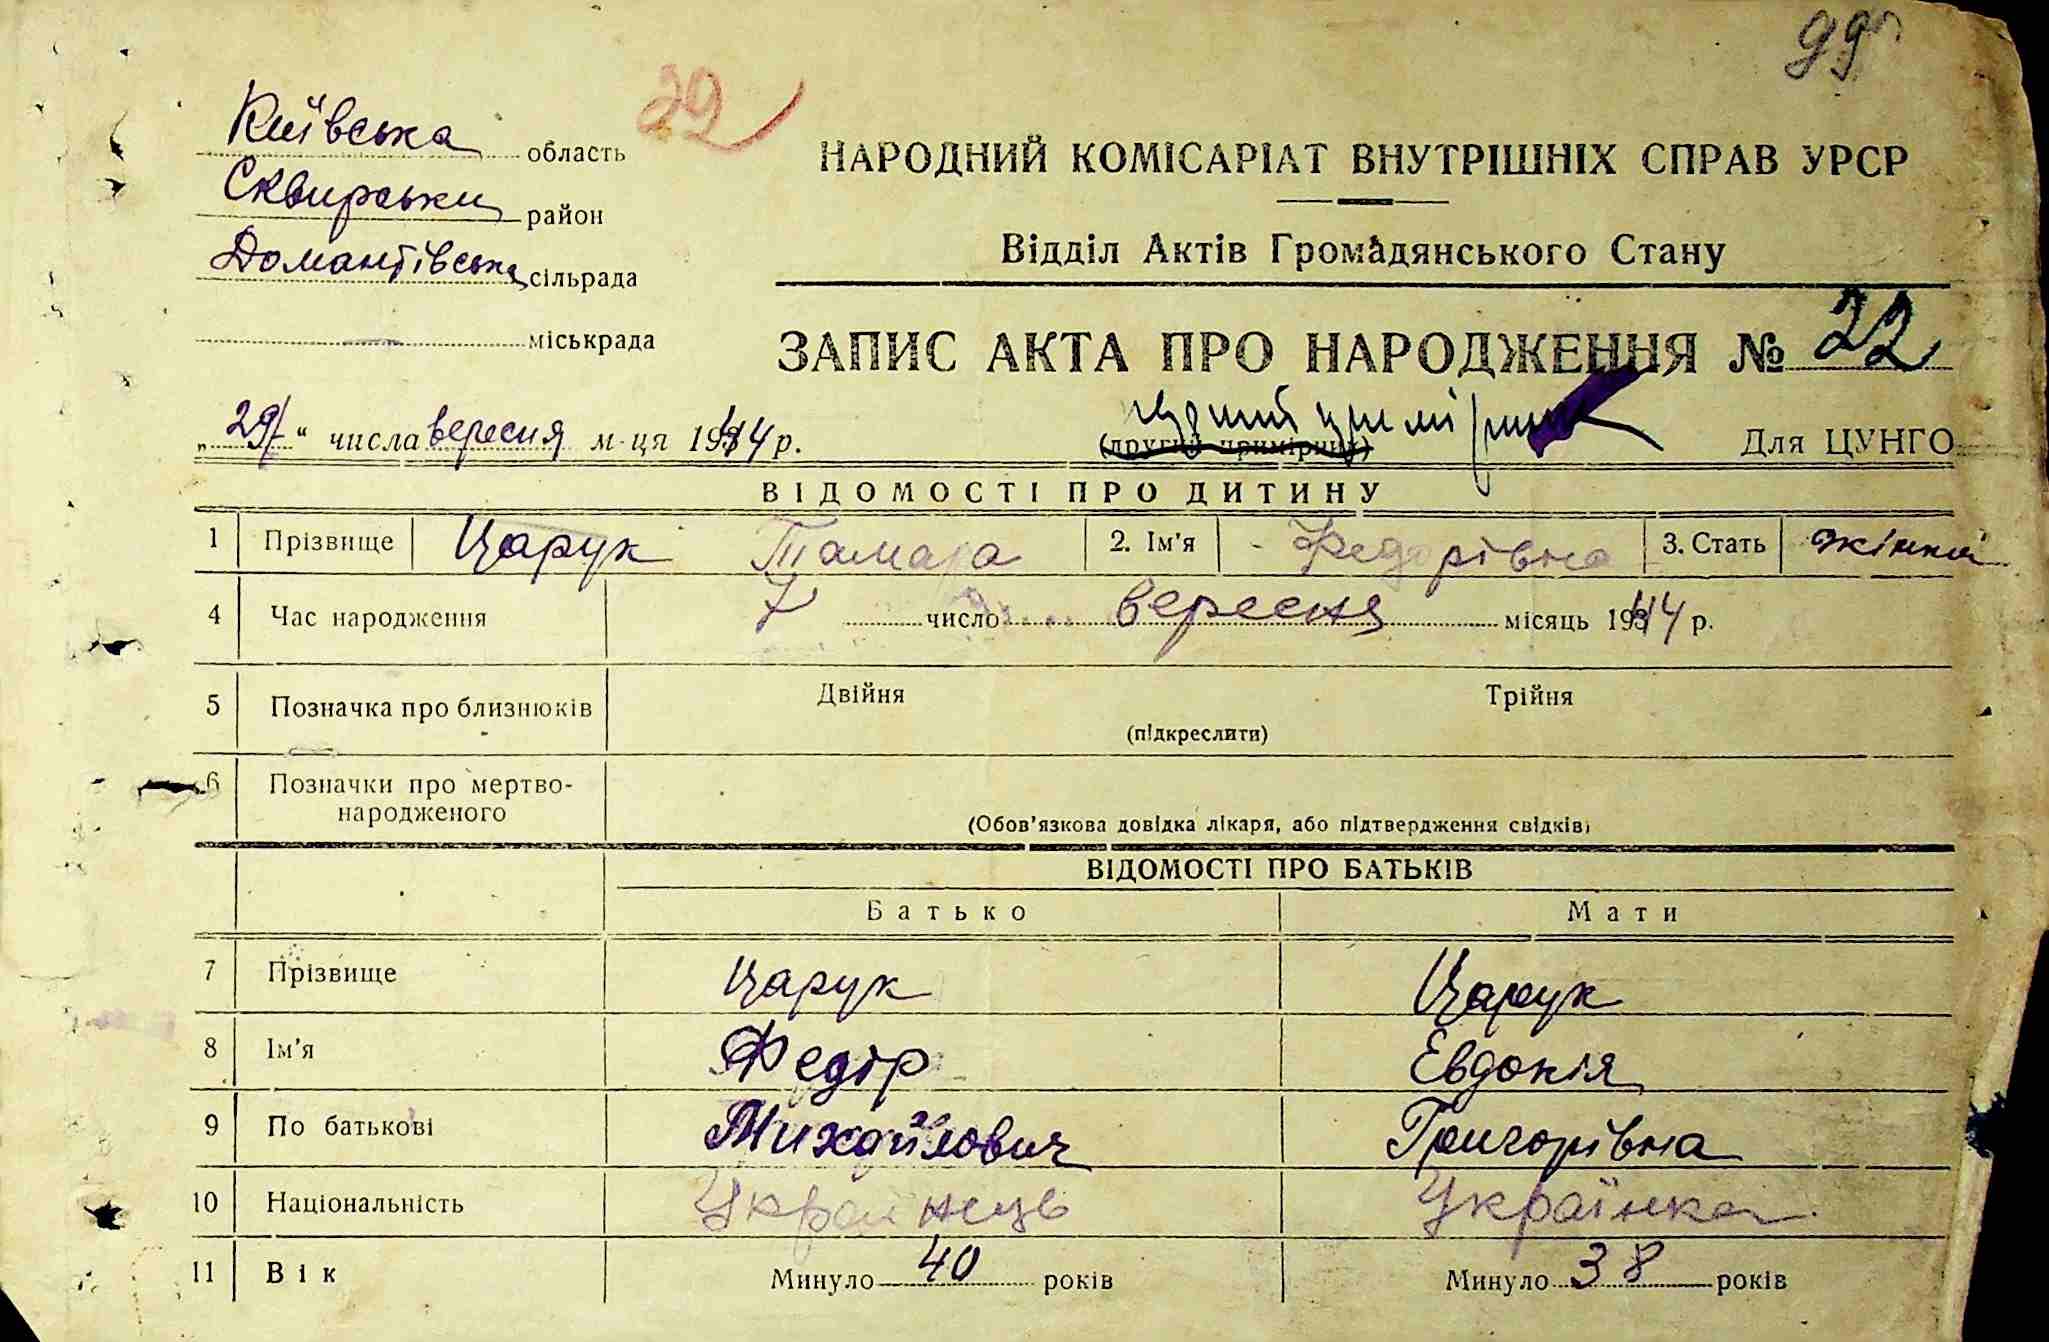 99
Київська область
22
Сквирський район
Домантівська сільрада
міськрада
НАРОДНИЙ КОМІСАРІАТ ВНУТРІШНІХ СПРАВ УРСР
Відділ Актів Громадянського Стану
ЗАПИС АКТА ПРО НАРОДЖЕННЯ № 22
„29" числа вересня м-ця 1944 р.
(другий примірник)
Для ЦУНГО
ВІДОМОСТІ ПРО ДИТИНУ
1 Прізвище Царук Тамара 2. Ім'я Федорівна 3. Стать
4 Час народження 7 число вересня місяць 1944 р.
5 Позначка про близнюків Двійня Трійня
(підкреслити)
6 Позначки про мертво-
народженого
(Обов'язкова довідка лікаря, або підтвердження свідків)
ВІДОМОСТІ ПРО БАТЬКІВ
Батько Мати
7 Прізвище Царук Царук
8 Ім'я Федір Евдокія
9 По батькові Михайлович Григорівна
10 Національність Українець Українка
11 Вік Минуло 40 років Минуло 38 років